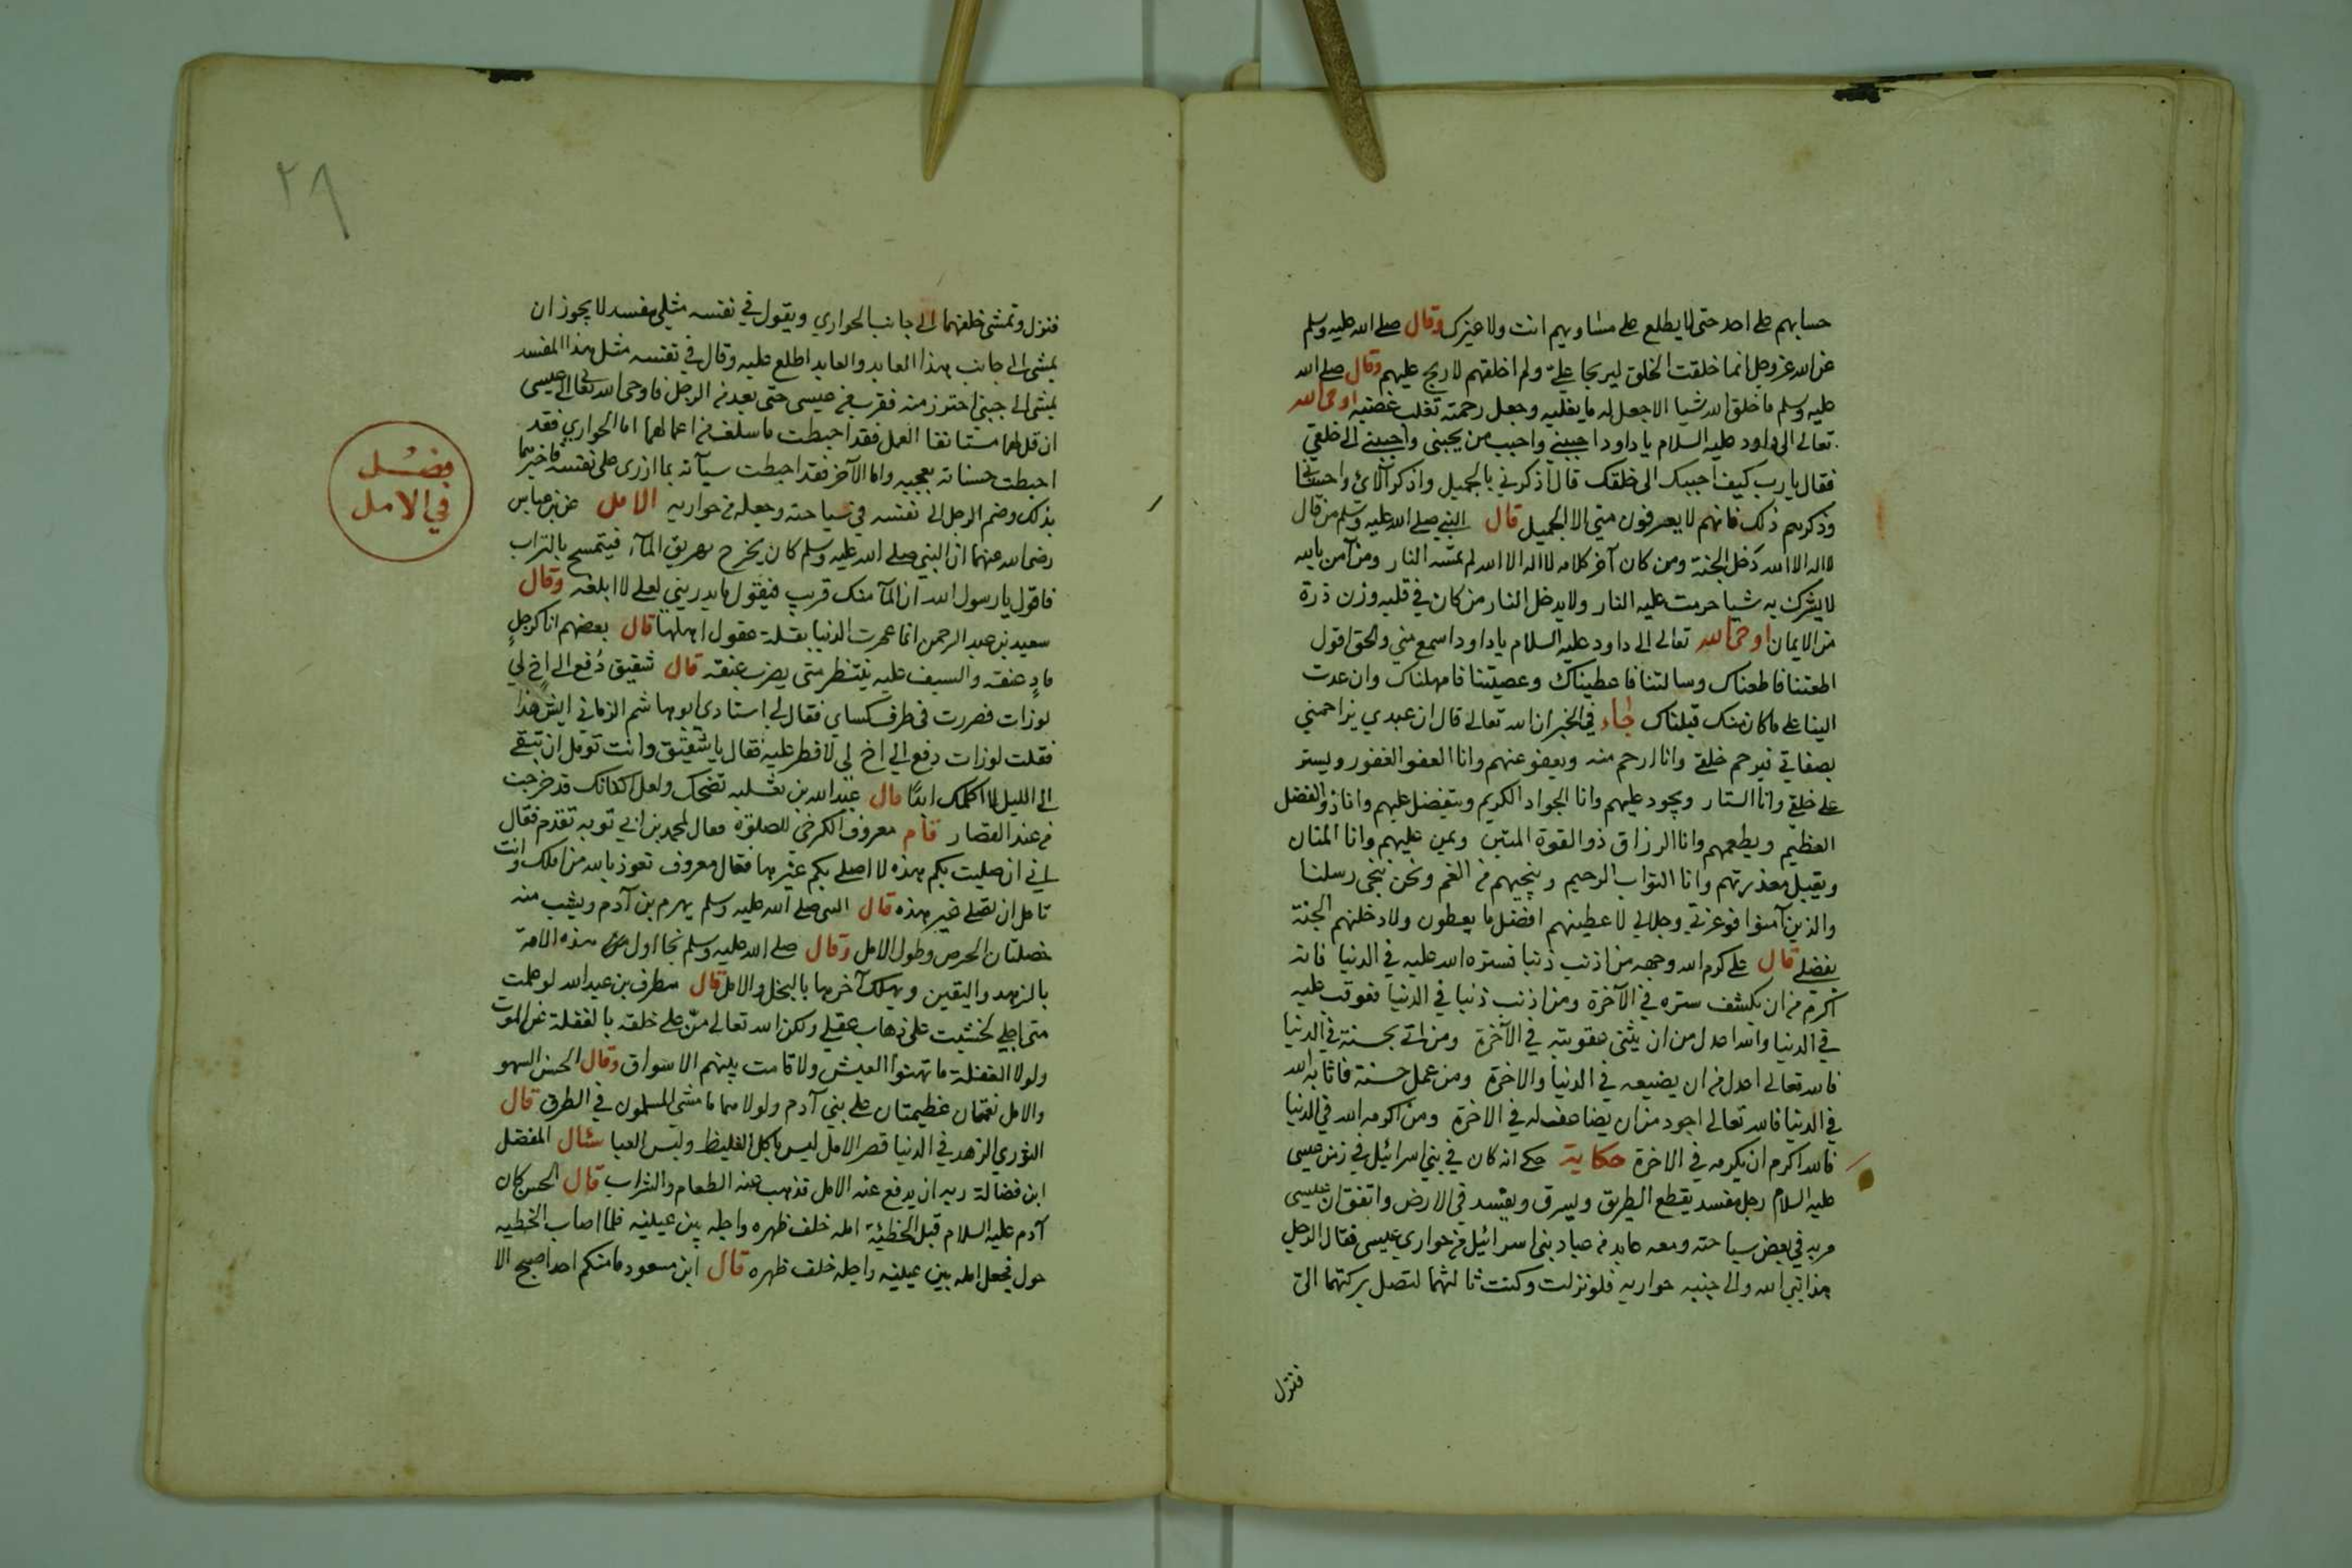 حسابهم على احد حتى لا يطلع على مساويهم انت ولا غيرك وقال صلى الله عليه وسلم
عن الله عز وجل انما خلقت الخلق ليربحا عليّ ولم اخلقهم لاربح عليهم وقال صلى الله
عليه وسلم ما خلق الله شيا الا جعل له ما يغلبه وجعل رحمته تغلب غضبه اوحى الله
تعالى الى داود عليه السلام يا داود احببني واحبب من يحبنى واحببني الى خلقي
فقال يا رب كيف احببك الى خلقك قال اذكرني بالجميل واذكر آلائ واحساني
وذكرهم ذلك فانهم لا يعرفون منى الا الجميل قال النبي صلى الله عليه وسلم من قال
لا اله الا الله دخل الجنة ومن كان آخر كلامه لا اله الا الله لم تمسه النار ومن آمن بالله
لا يشرك به شيا حرمت عليه النار ولا يدخل النار من كان في قلبه وزن ذرة
من الايمان اوحى الله تعالى الى داود عليه السلام يا داود اسمع مني والحق اقول
اطعتنا فاطعناك وسالتنا فاعطيناك وعصيتنا فامهلناك وان عدت
الينا على ما كان منك قبلناك جاء في الخبر ان الله تعالى قال ان عبدي يزاحمني
بصفاتي فيرحم خلقي وانا ارحم منه ويعفو عنهم وانا العفو الغفور ويستر
على خلقي وانا الستار ويجود عليهم وانا الجواد الكريم ويتفضل عليهم وانا ذو الفضل
العظيم ويطعمهم وانا الرزاق ذو القوة المتين ويمن عليهم وانا المنان
ويقبل معذرتهم وانا التواب الرحيم وينجيهم من الغم ونحن ننجى رسلنا
والذين آمنوا فوعزتي وجلالي لاعطينهم افضل ما يعطون ولادخلنهم الجنة
بفضلي قال على كرم الله وجهه من اذنب ذنبا فستره الله عليه في الدنيا فانه
اكرم من ان يكشف ستره في الآخرة ومن اذنب ذنبا في الدنيا فعوقب عليه
في الدنيا والله اعدل من ان يثنى عقوبته في الآخرة ومن اتى بحسنة في الدنيا
فالله تعالى اعدل من ان يضيعه في الدنيا والاخرة ومن عمل حسنة فاثابه الله
في الدنيا فالله تعالى اجود من ان يضاعف له في الاخرة ومن اكرمه الله في الدنيا
فالله اكرم ان يكرمه في الاخرة حكاية حكي انه كان في بني اسرائيل في زمن عيسى
عليه السلام رجل مفسد يقطع الطريق ويسرق ويفسد في الارض واتفق ان عيسى
مر به في بعض سياحته ومعه عابد من عباد بنى اسرائيل من حواري عيسى فقال الرجل
هذا نبي الله والى جنبه حواريه فلو نزلت وكنت ثالثهما لتصل بركتهما الىّ
فنزل
٢٩
فنزل وتمشى خلفهما الى جانب الحواري ويقول في نفسه مثلى مفسد لا يجوز ان
يمشى الى جانب هذا العابد والعابد اطلع عليه وقال في نفسه مثل هذا المفسد
يمشى الى جبني احترز منه فقرب من عيسى حتى بعد من الرجل فاوحى الله تعالى الى عيسى
ان قل لهما يستانفا العمل فقد احبطت ما سلف من اعمالهما اما الحواري فقد
احبطت حسناته بعجبه واما الآخر فقد احبطت سيآته بما ازرى على نفسه فاخبرهما
بذلك وضم الرجل الى نفسه في سياحته وجعله من حواريه الامل عن بن عباس
رضى الله عنهما ان النبي صلى الله عليه وسلم كان يخرج يهريق المآء فيتمسح بالتراب
فاقول يا رسول الله ان المآ منك قريب فيقول ما يدريني لعلى لا ابلغه وقال
سعيد بن عبد الرحمن انما عمرت الدنيا بقلة عقول اهلها قال بعضهم انا كرجلٍ
مادٍ عنقه والسيف عليه ينتظر متى يضرب عنقه قال شقيق دُفع الى اخٍ لي
لوزات فصررت في طرف كساي فقال لي استادي ابو هاشم الرماني ايش هذا
فقلت لوزات دفع الي اخ لي لافطر عليه فقال يا شقيق وانت تومل ان تبقى
الى الليل لا اكلمك ابدًا قال عبد الله بن ثعلبه تضحك ولعل اكفانك قد خرجت
من عند القصار قام معروف الكرخي للصلوة فقال لمحمد بن ابي توبه تقدم فقال
اني ان صليت بكم هذه لا اصلى بكم غيرها فقال معروف تعوذ بالله من املك وانت
تامل ان تصلي غير هذه قال النبى صلى الله عليه وسلم يهرم بن آدم ويشب منه
خصلتان الحرص وطول الامل وقال صلى الله عليه وسلم نجا اول هذه الامة
بالزهد واليقين ويهلك آخرها بالبخل والامل قال مطرف بن عبد الله لو علمت
متى اجلي لخشيت على ذهاب عقلي ولكن الله تعالى منّ على خلقه بالغفلة عن الموت
ولولا الغفلة ما تهنوا العيش ولا قامت بينهم الاسواق وقال الحسن السهو
والامل نعمتان عظيمتان على بني آدم ولولا هما ما مشى المسلمون في الطرق قال
الثوري الزهد في الدنيا قصر الامل ليس باكل الغليظ ولبس العبا سئال المفضل
ابن فضالة ربه ان يدفع عنه الامل فذهب عنه الطعام والشراب قال الحسن كان
آدم عليه السلام قبل الخطيّة امله خلف ظهره واجله بين عينيه فلما اصاب الخطيه
حول فجعل امله بين عينيه واجله خلف ظهره قال ابن مسعود ما منكم احد اصبح الا
فصل
في الامل